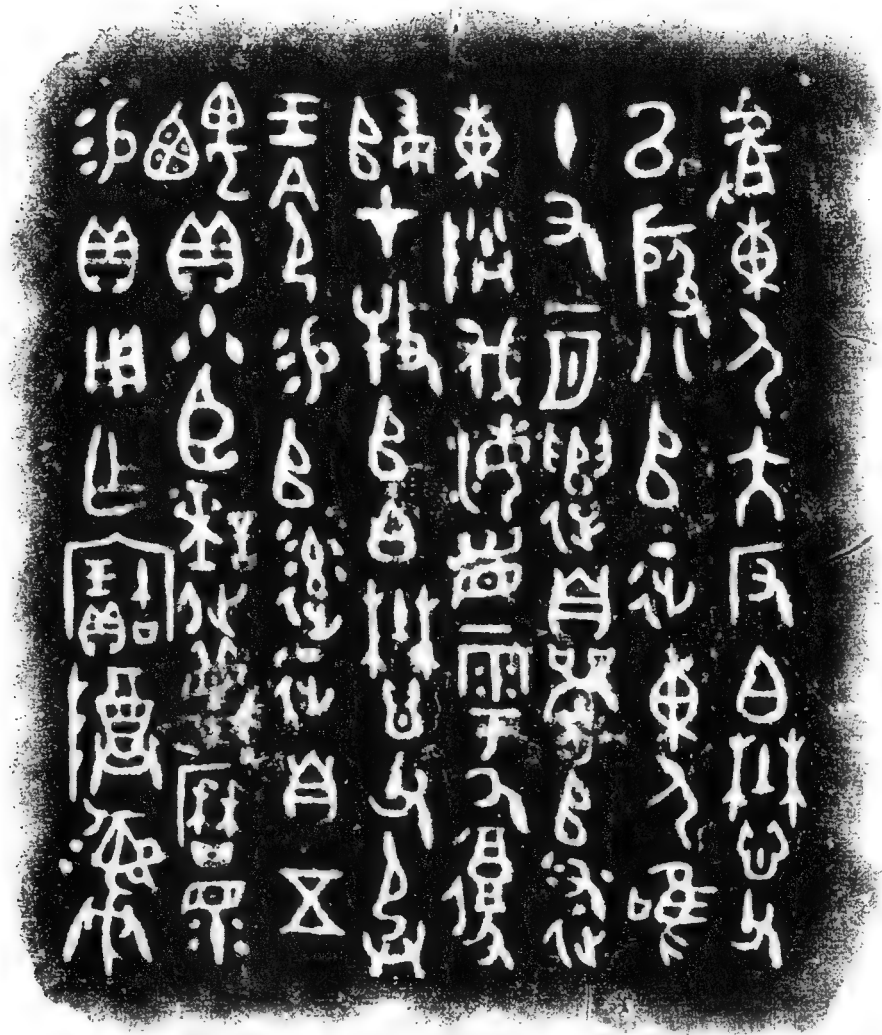 𠭯東尸大反白懋父
㠯殷八𠂤征東尸唯
十又一月遣自𩫨𠂤述
東陕伐海眉雩氒復
歸才牧𠂤白懋父承
王令易𠂤達征自五
齵貝小臣謎蔑曆眔
易貝用乍寶尊彝